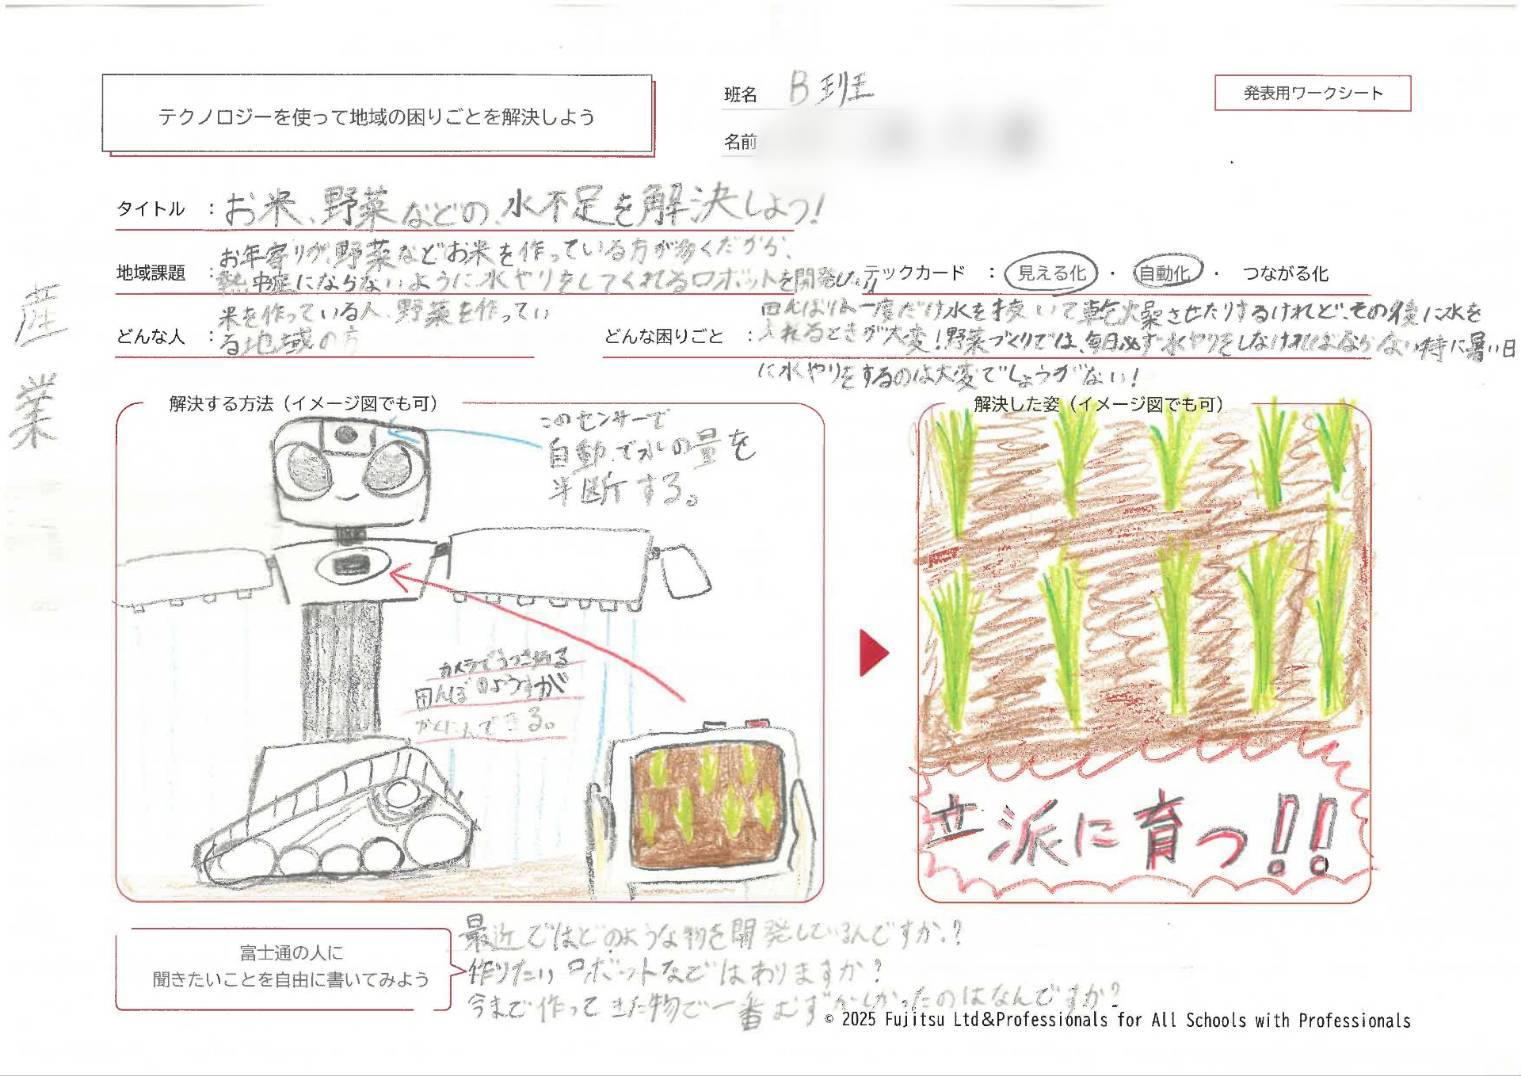 テクノロジーを使って地域の困りごとを解決しよう
班名 B班
名前
発表用ワークシート
タイトル : お米、野菜などの、水不足を解決しよう!
産業
地域課題 : お年寄りが、野菜などお米を作っている方が多くだから、
熱中症にならないように水やりをしてくれるロボットを開発し
テックカード : 見える化 ・ 自動化 ・ つながる化
どんな人 : 米を作っている人、野菜を作ってい
る地域の方
どんな困りごと : 田んぼは一度だけ水を抜いて乾燥させたりするけれど、その後に水を
入れるときが大変!野菜づくりでは、毎日必ず水やりをしなければならない特に暑い日
に水やりをするのは大変でしょうがない!
解決する方法(イメージ図でも可)
このセンサーで
自動で水の量を
判断する。
カメラでうつ
田んぼのようすが
かくにんできる。
解決した姿(イメージ図でも可)
立派に育つ!!
富士通の人に
聞きたいことを自由に書いてみよう
最近ではどのような物を開発しているんですか?
作りたいロボットなどはありますか?
今まで作ってきた物で一番むずかしかったのはなんですか?
© 2025 Fujitsu Ltd&Professionals for All Schools with Professionals